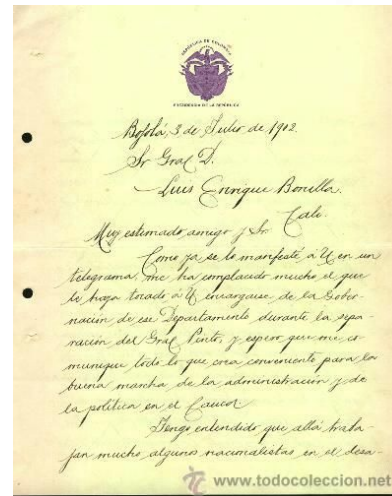 REPUBLICA DE COLOMBIA
PRESIDENCIA DE LA REPUBLICA
Bogotá, 3 de Julio de 1902.
Sr Gral D.
Luis Enrique Bonilla.
Cali.
Muy estimado amigo y Sr.
Como ya se lo manifesté á U en un
telegrama, me ha complacido mucho el que
le haya tocado á U encargarse de la Gober-
nación de ese Departamento durante la sepa-
ración del Gral Pinto, y espero que me co-
munique todo lo que crea conveniente para la
buena marcha de la administración y de
la política en el Cauca.
Tengo entendido que allá traba-
jan mucho algunos nacionalistas en el desa-
www.todocoleccion.net